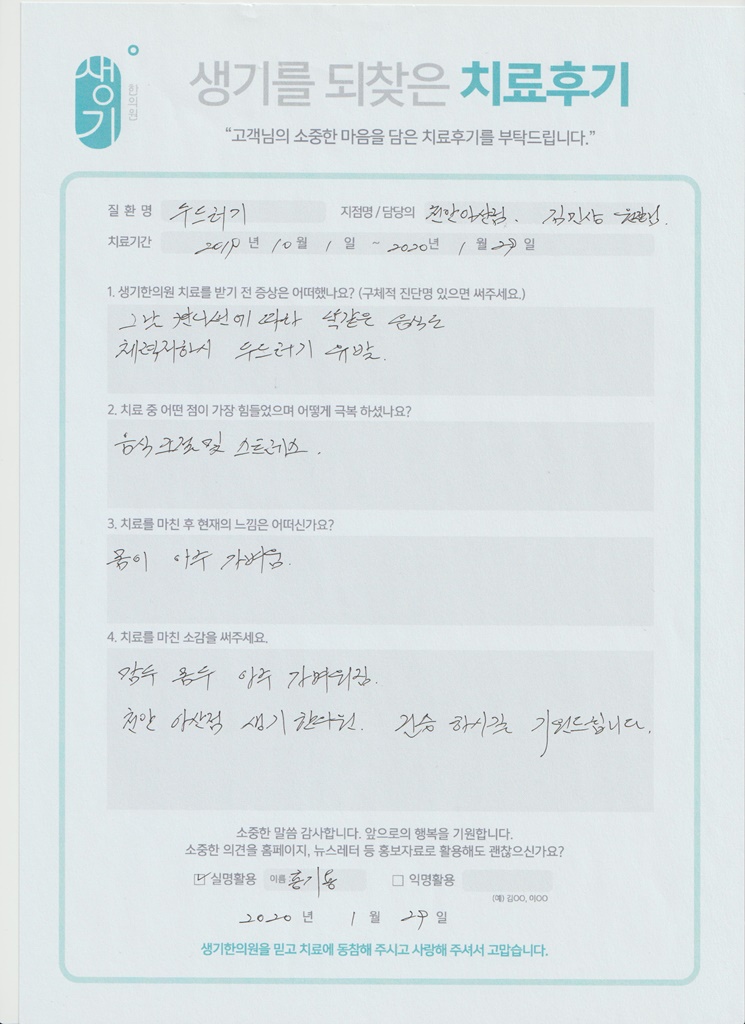 생기
한의원
생기를 되찾은 치료후기
“고객님의 소중한 마음을 담은 치료후기를 부탁드립니다.”
질 환 명 두드러기 지점명 / 담당의 천안아산점. 김민상 원장님.
치료기간 2019 년 10 월 1 일 ~ 2020 년 1 월 29 일
1. 생기한의원 치료를 받기 전 증상은 어떠했나요? (구체적 진단명 있으면 써주세요.)
그날 컨디션에 따라 똑같은 음식도
체력저하시 두드러기 유발.
2. 치료 중 어떤 점이 가장 힘들었으며 어떻게 극복 하셨나요?
음식조절 및 스트레스.
3. 치료를 마친 후 현재의 느낌은 어떠신가요?
몸이 아주 가벼움.
4. 치료를 마친 소감을 써주세요.
몸두 아주 가벼워짐.
천안 아산점 생기 한의원. 건승 하시길 기원드립니다.
소중한 말씀 감사합니다. 앞으로의 행복을 기원합니다.
소중한 의견을 홈페이지, 뉴스레터 등 홍보자료로 활용해도 괜찮으신가요?
실명활용 이름 홍기용 익명활용
(예) 김OO, 이OO
2020 년 1 월 29 일
생기한의원을 믿고 치료에 동참해 주시고 사랑해 주셔서 고맙습니다.